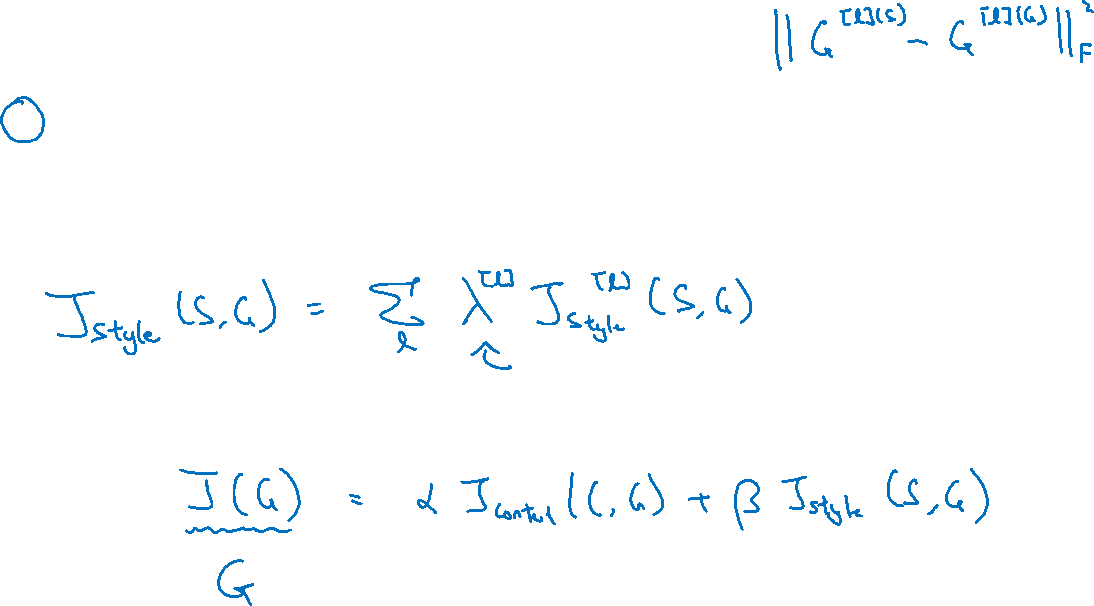 || G^{[l](S)} - G^{[l](G)} ||_F^2
J_{style} (S,G) = Σ_l λ^{[l]} J_{style}^{[l]} (S,G)
J(G) = α J_{content} (C,G) + β J_{style} (S,G)
G